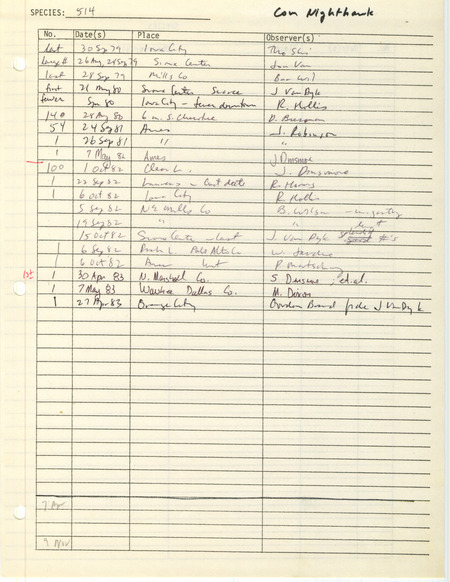 SPECIES: 514 Com Nighthawk
No. Date(s) Place Observer(s)
last 30 Sep 79 Iowa City
large # 26 Aug, 24 Sep 79 Sioux Center Van
last 28 Sep 79 Mills Co Wil
first 21 May 80 Sioux Center J Van Dyk
fewer 80 Iowa City - fewer downtown R. Hollis
140 28 Aug 80 6 m. S. Cherokee D. Bierman
54 24 Sep 81 Ames J. Robinson
1 26 Sep 81 " "
1 7 May 82 Ames J Dinsmore
100 1 Oct 82 Clear L. J. Dinsmore
1 22 Sep 82 R.
1 6 Oct 82 Iowa City R Hollis
1 5 Sep 82 NE Mills Co B. Wilson - migrating
1 19 Sep 82 " " last
15 Oct 82 Sioux Center - last J. Van Dyk good #'s
1 6 Sep 82 Rush L. Palo Alto Co W.
1 6 Oct 82 last P
1st 1 30 Apr 83 N. Marshall Co. S. Dinsmore; et.al.
1 7 May 83 Waukee Dallas Co. M.
1 27 Apr 83 Orange City Gordon Brand fide J Van Dyk
7 Apr
9 Nov